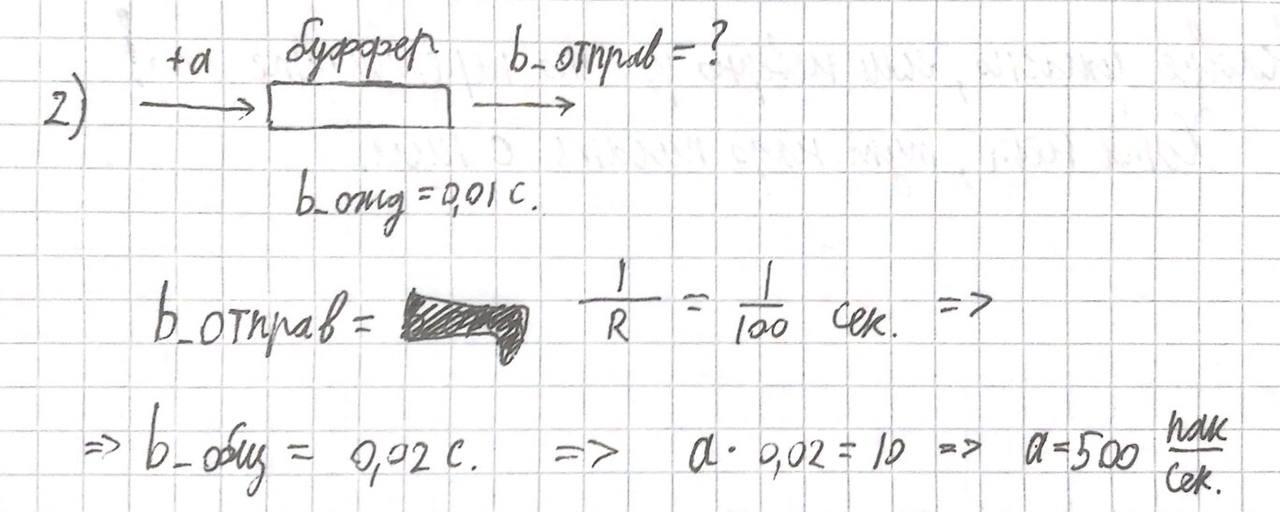 2) +a буффер b_отправ = ?
b_ожид = 0,01 с.
b_отправ = 1/R = 1/100 сек. =>
=> b_общ = 0,02 с. => a · 0,02 = 10 => a = 500 пак/сек.